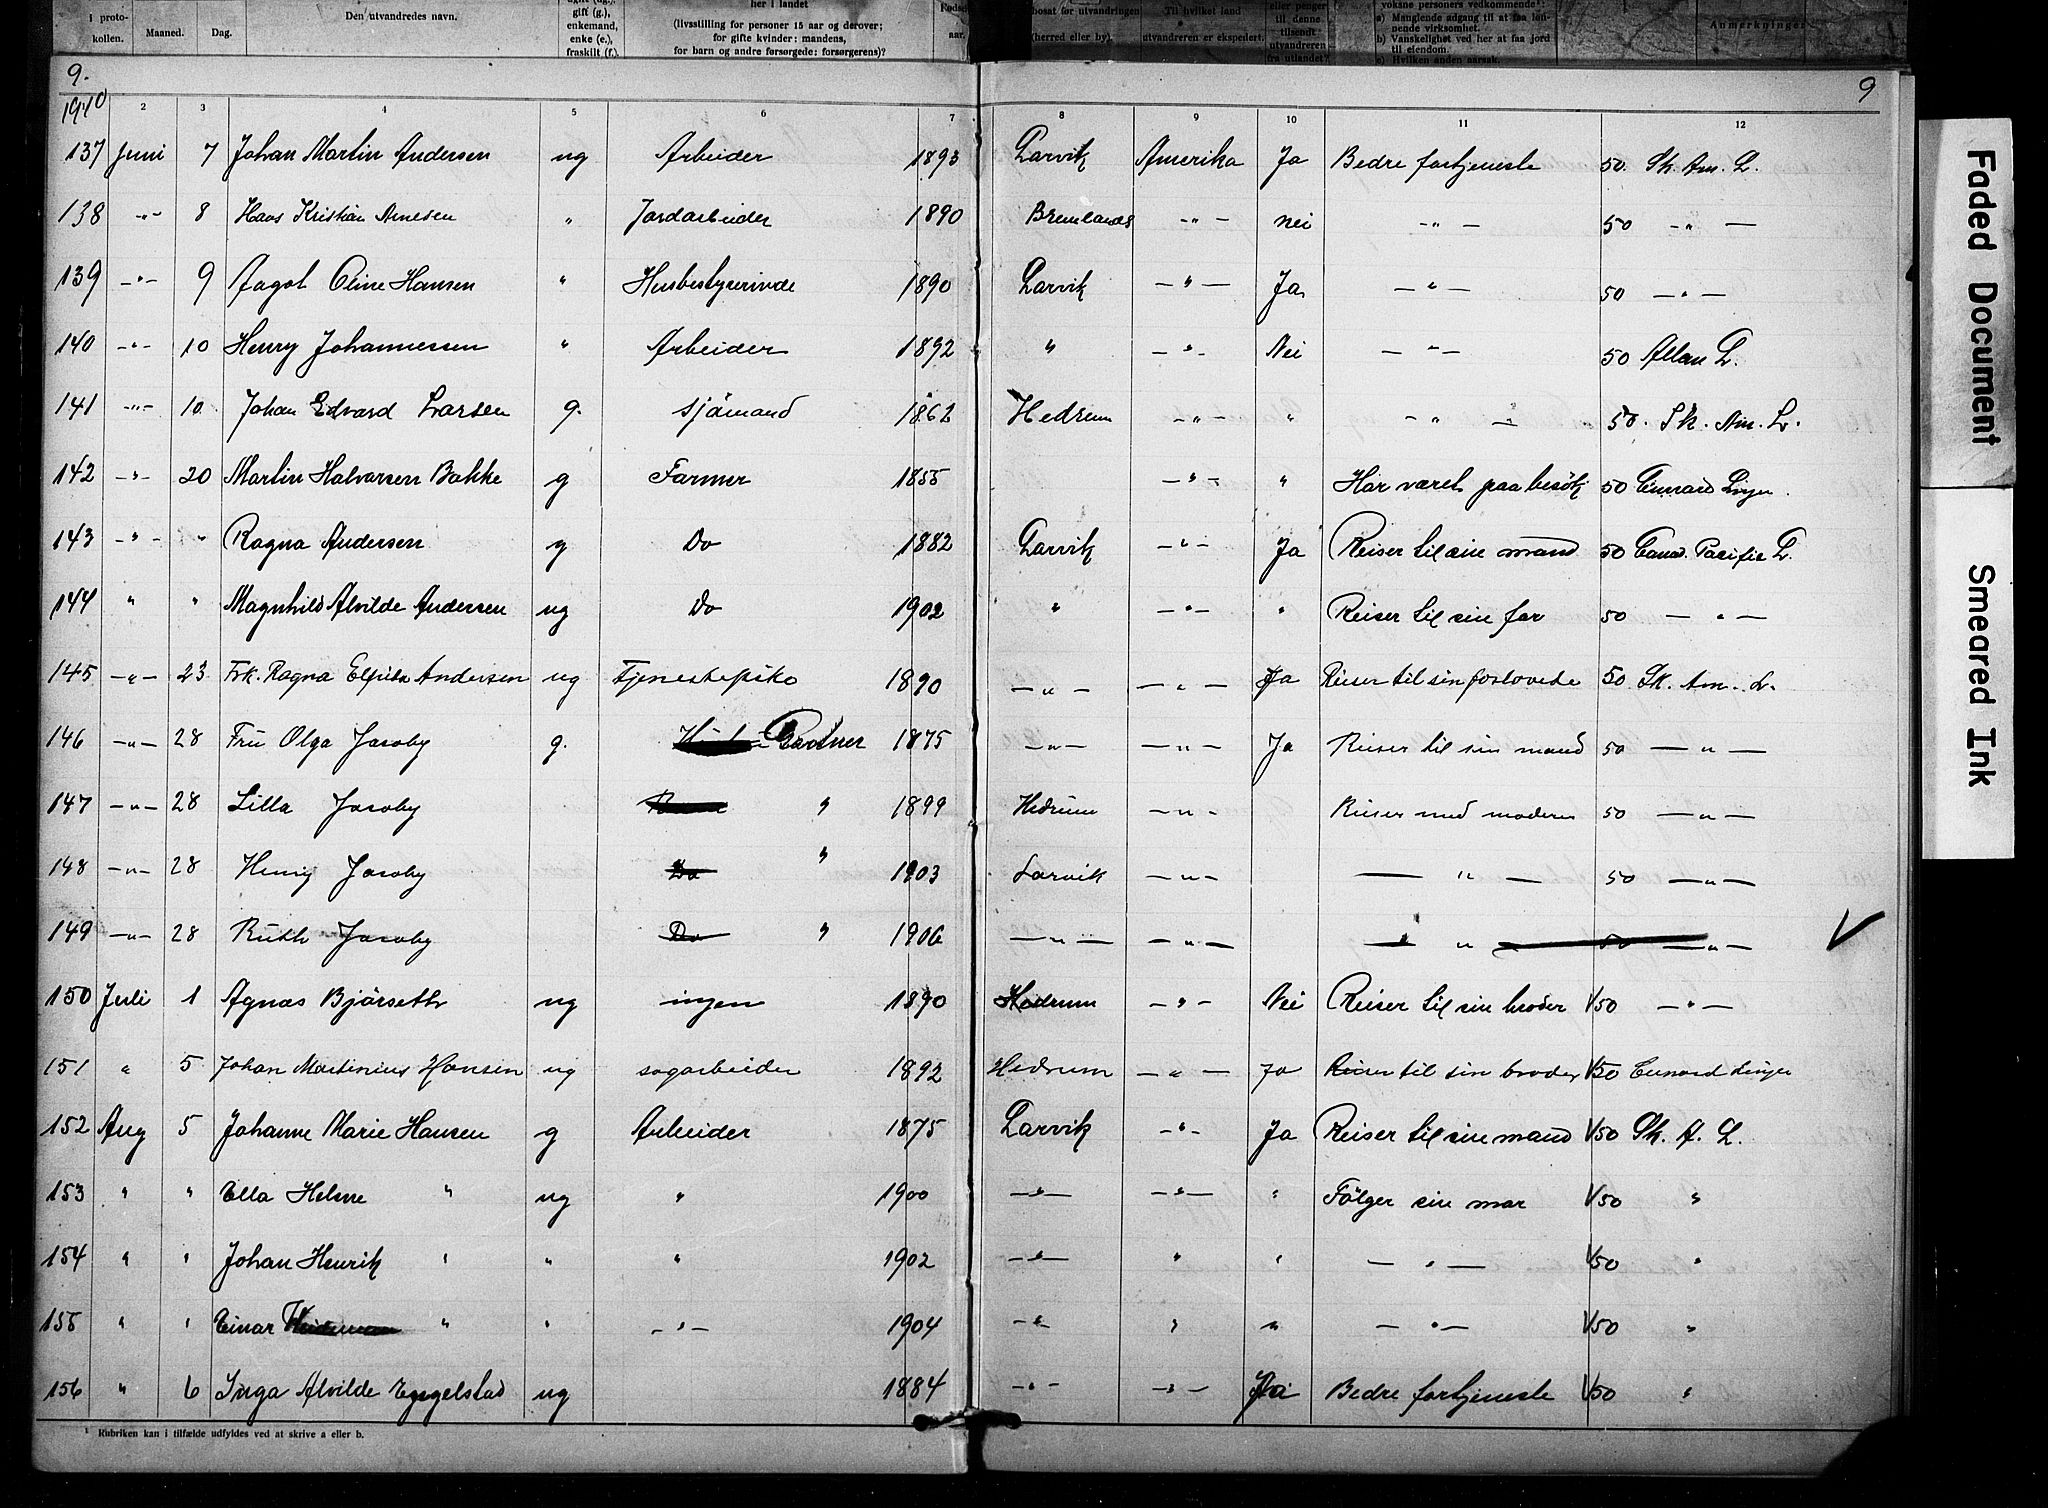 i proto-
kollen.
Maaned.
Dag.
Den utvandredes navn.
gift (g.),
enkemand,
enke (e.),
fraskilt (f.).
her i landet
(livsstilling for personer 15 aar og derover;
for gifte kvinder: mandens,
for barn og andre forsørgede: forsørgerens)?
aar.
bosat før utvandringen
(herred eller by).
Til hvilket land
utvandreren er ekspedert.
eller penger
til denne
tilsendt
utvandreren
fra utlandet?
voksne personers vedkommende¹:
a) Manglende adgang til at faa løn-
nende virksomhet.
b) Vanskelighet ved her at faa jord
til eiendom.
c) Hvilken anden aarsak.
Anmerkninger
9.
9
1910 2 3 4 5 6 7 8 9 10 11 12
137 Juni 7 Johan Martin Andersen ug Arbeider 1893 Larvik Amerika Ja Bedre fortjeneste 50. Sk. Am. L.
138 -"- 8 Hans Kristian Arnesen " Jordarbeider 1890 Brunlanes -"- nei -"- 50 -"-
139 -"- 9 Aagot Oline Hansen " Husbestyrerinde 1890 Larvik -"- Ja -"- 50 -"-
140 -"- 10 Henry Johannessen " Arbeider 1892 " -"- Nei -"- 50 Allan L.
141 -"- 10 Johan Edvard Larsen g. sjömand 1862 Hedrum -"- " -"- 50. Sk. Am. L.
142 -"- 20 Martin Halvorsen Bakke g Farmer 1855 -"- " Har været paa besök 50 Cunard Linjen.
143 -"- " Ragna Andersen g Do 1882 Larvik -"- Ja Reiser til sin mand 50 Canad. Pacific L.
144 " " Magnhild Alvilde Andersen ug Do 1902 " -"- " Reiser til sin far 50 -"-
145 -"- 23 Frk. Ragna Elfrida Andersen ug Tjenestepike 1890 -"- -"- Ja Reiser til sin forlovede 50 Sk. Am. L.
146 -"- 28 Fru Olga Jacoby g. Gartner 1875 -"- -"- Ja Reiser til sin mand 50 -"-
147 -"- 28 Lilla Jacoby " 1899 Hedrum -"- Reiser med moderen 50 -"-
148 -"- 28 Henry Jacoby Do " 1903 Larvik -"- -"- 50 -"-
149 -"- 28 Ruth Jacoby Do " 1906 -"- -"- -"- 50 -"-
150 Juli 1 Agnes Björseth ug ingen 1890 Hedrum -"- Nei Reiser til sin broder 1/50 -"-
151 " 5 Johan Martinius Hansen ug sagarbeider 1892 Hedrum -"- Ja Reiser til sin broder 1/50 Cunard Linjen
152 Aug 5 Johanne Marie Hansen g Arbeider 1875 Larvik -"- Ja Reiser til sin mand 1/50 Sk. A. L.
153 " " Ella Helene " ug " 1900 -"- -"- " Fölger sin mor 1/50 "
154 " " Johan Henrik " " " 1902 -"- " " -"- 1/50 "
155 " " Einar " " -"- 1904 -"- " " -"- 1/50 "
156 " 6 Inga Alvilde Engelstad ug 1884 -"- -"- Ja Bedre fortjeneste 1/50 "
¹ Rubriken kan i tilfælde udfyldes ved at skrive a eller b.
Faded Document
Smeared Ink